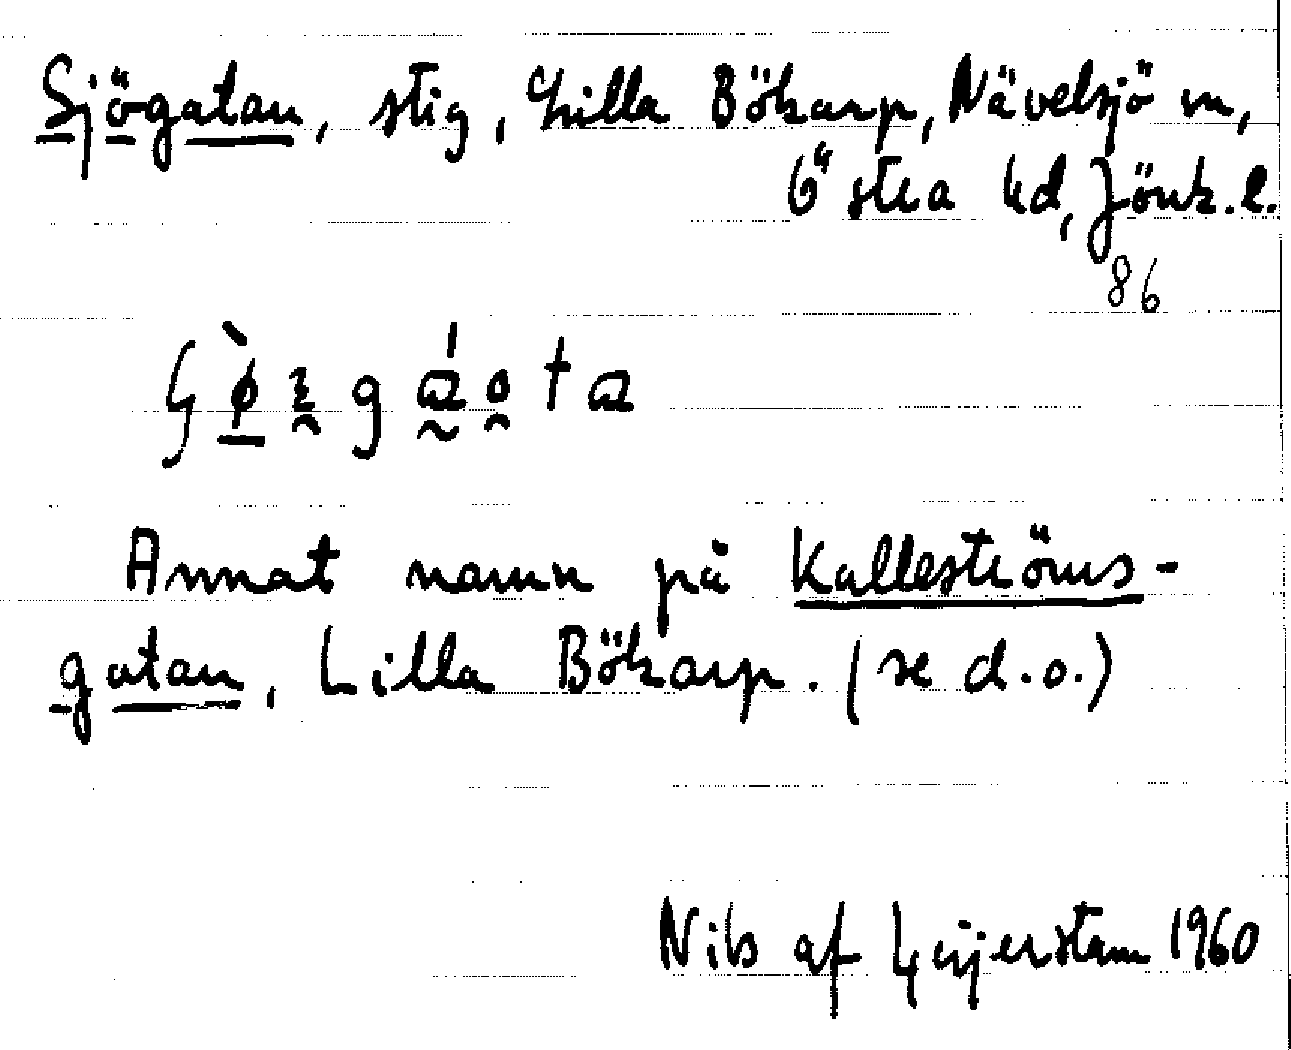 Sjögatan, stig, Lilla Bökarp, Nävelsjö sn,
Östra hd, Jönk. l.
86
Annat namn på Kalleströms-
gatan, Lilla Bökarp. (se d.o.)
Nils af Geijerstam 1960